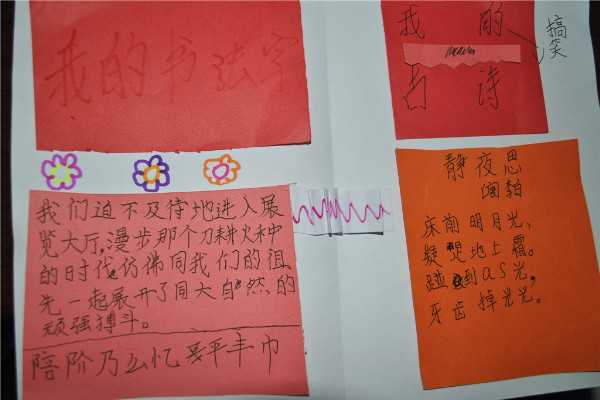 我的书法字
我们迫不及待地进入展
览大厅,漫步那个刀耕火种
的时代,仿佛同我们的祖
先一起展开了同大自然的
顽强搏斗。
陪阶乃么忆平丰巾
我的
搞笑
古诗
静夜思
床前明月光,
疑是地上霜。
碰到as光,
牙齿掉光光。